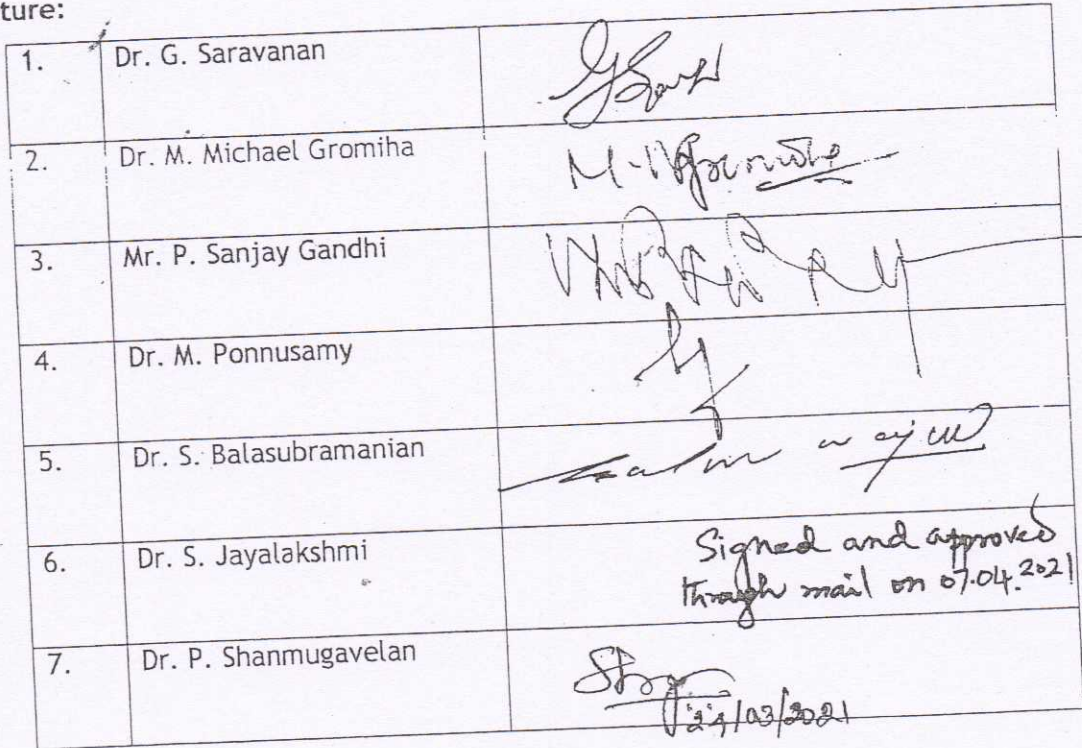 ture:
1. Dr. G. Saravanan
2. Dr. M. Michael Gromiha
3. Mr. P. Sanjay Gandhi
4. Dr. M. Ponnusamy
5. Dr. S. Balasubramanian
6. Dr. S. Jayalakshmi Signed and approved
through mail on 07.04.2021
7. Dr. P. Shanmugavelan
24/03/2021